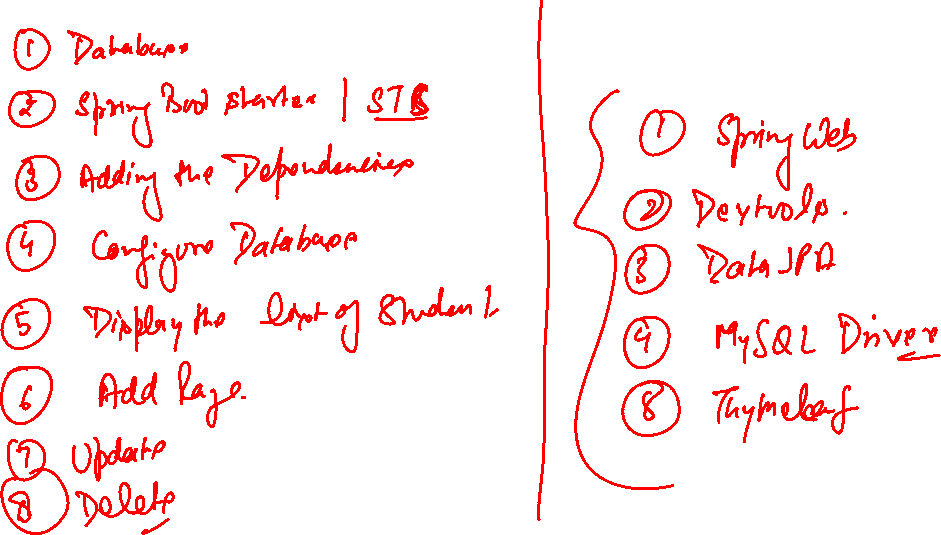 1 Database
2 Spring Boot starter | STS
3 Adding the Dependencies
4 Configure Database
5 Display the list of Student
6 Add Page.
7 Update
8 Delete
1 Spring Web
2 Devtools.
3 Data JPA
4 MySQL Driver
8 Thymeleaf